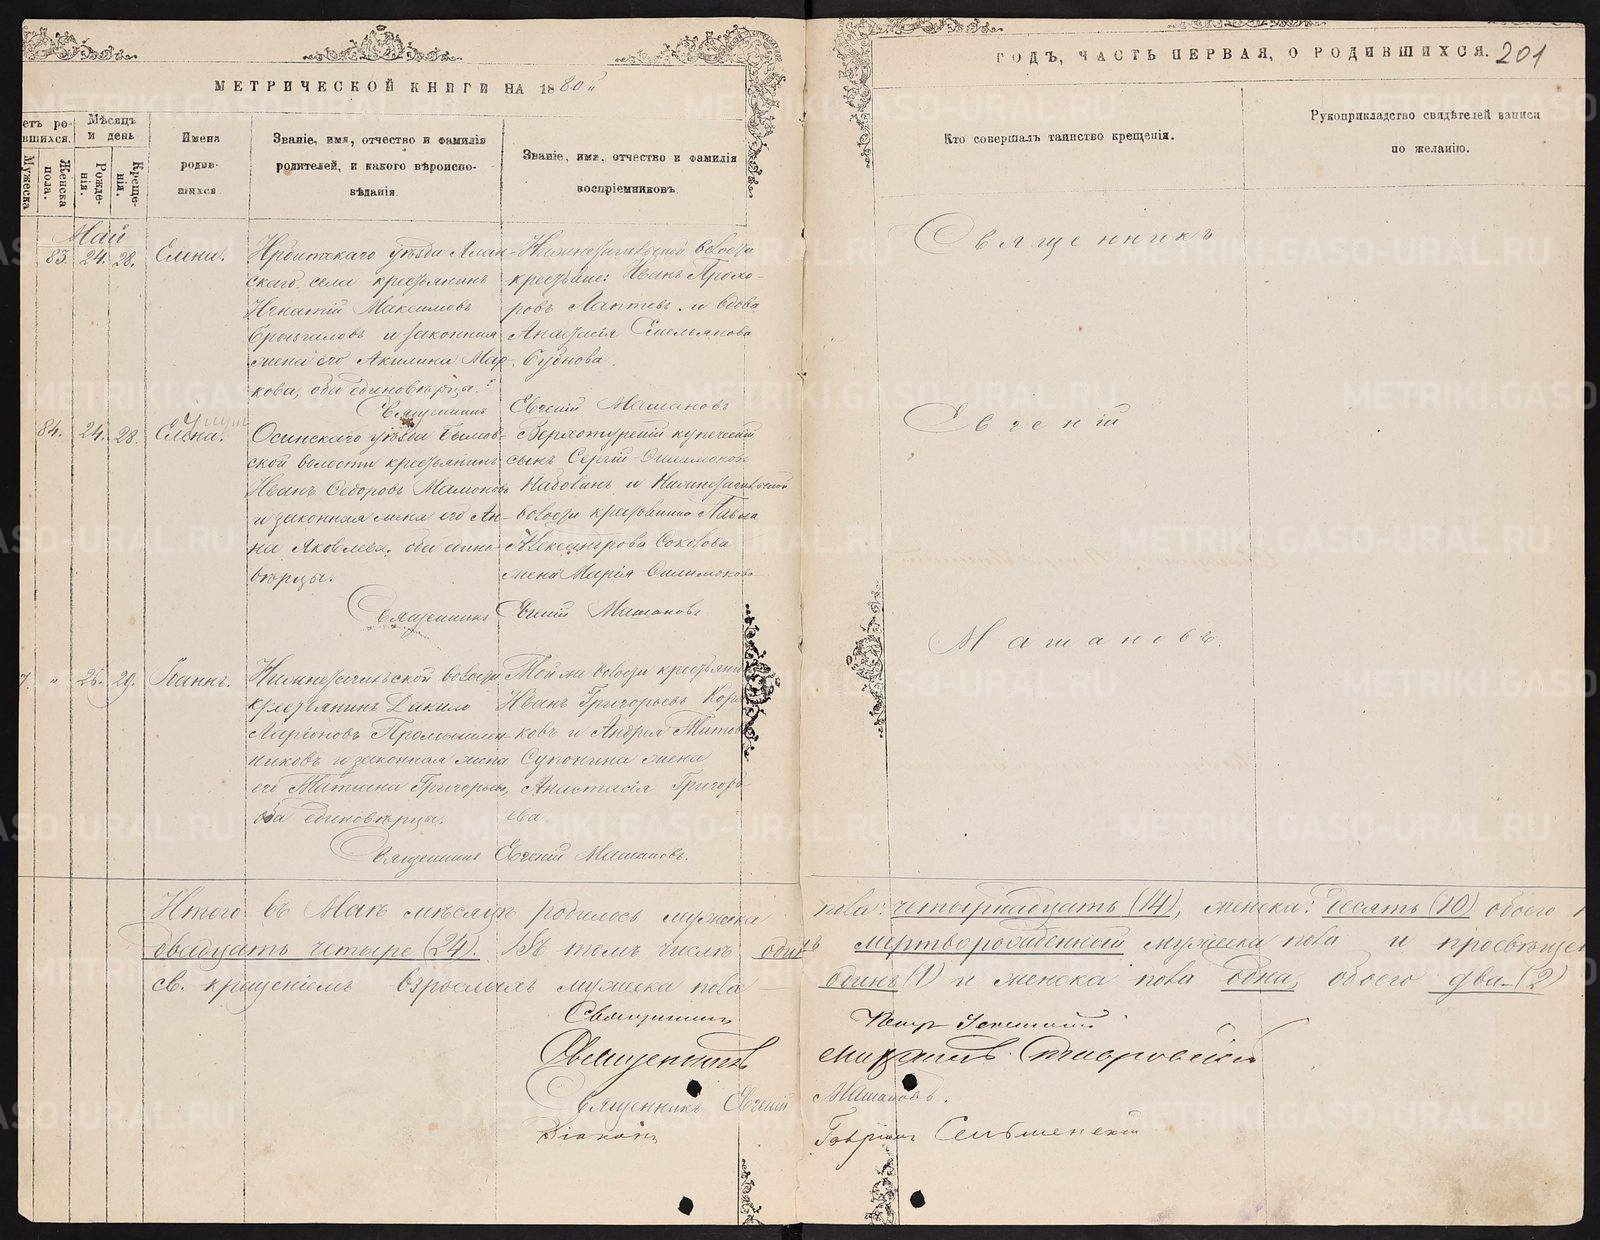 МЕТРИЧЕСКОЙ КНИГИ НА 1880й
ГОДЪ, ЧАСТЬ ПЕРВАЯ, О РОДИВШИХСЯ. 201
етъ ро-
вшихся.
Мужеска
Женска
пола.
Мѣсяцъ
и день
Рожде-
нія.
Креще-
нія.
Имена
родив-
шихся.
Званіе, имя, отчество и фамилія
родителей, и какого вѣроиспо-
вѣданія.
Званіе, имя, отчество и фамилія
воспріемниковъ.
Кто совершалъ таинство крещенія.
Рукоприкладство свидѣтелей записи
по желанію.
Май
83. 24. 28. Елена.
Ирбитскаго уѣзда Алап-
скаго села крестьянинъ
Игнатій Максимовъ
Брызгаловъ и законная
жена его Акилина Мар-
кова, оба единовѣрцы.
Нижнетагильской волости
крестьяне: Иванъ Прохо-
ровъ Лаптевъ и вдова
Анастасія Емельянова
Священникъ Евгеній Машановъ
84. 24. 28. Елена.
Осинскаго уѣзда Бымов-
ской волости крестьянинъ
Иванъ Ѳедоровъ Мамоновъ
и законная жена его Ан-
на Яковлева, оба едино-
вѣрцы.
Верхотурскій купеческій
сынъ Сергій Филимоновъ
и Нижнетагильской
волости крестьянина Павла
Александрова Соколова
жена Марія Филимонова
Священникъ Евгеній Машановъ
" 26. 29. Іоаннъ.
Нижнетагильской волости
крестьянинъ Данило
Ларіоновъ Промышлен-
никовъ и законная жена
его Татіана Григорьева,
оба единовѣрцы.
Той же волости крестьяне
Иванъ Григорьевъ
ковъ и Андрея Титова
жена
Анастасія Григорь-
ева.
Священникъ Евгеній Машановъ.
Священникъ
Евгеній
Машановъ.
Итого въ Маѣ мѣсяцѣ родилось мужеска пола: четырнадцать (14), женска: десять (10) обоего
двадцать четыре (24). Въ томъ числѣ одинъ мертворожденный мужеска пола и просвѣщен
св. крещеніемъ взрослыхъ мужеска пола одинъ (1) и женска пола одна, обоего два (2)
Священникъ Петръ
Священникъ Михаилъ Ставровскій
Священникъ Евгеній Машановъ.
Діаконъ Гавріилъ
METRIKI.GASO-URAL.RU